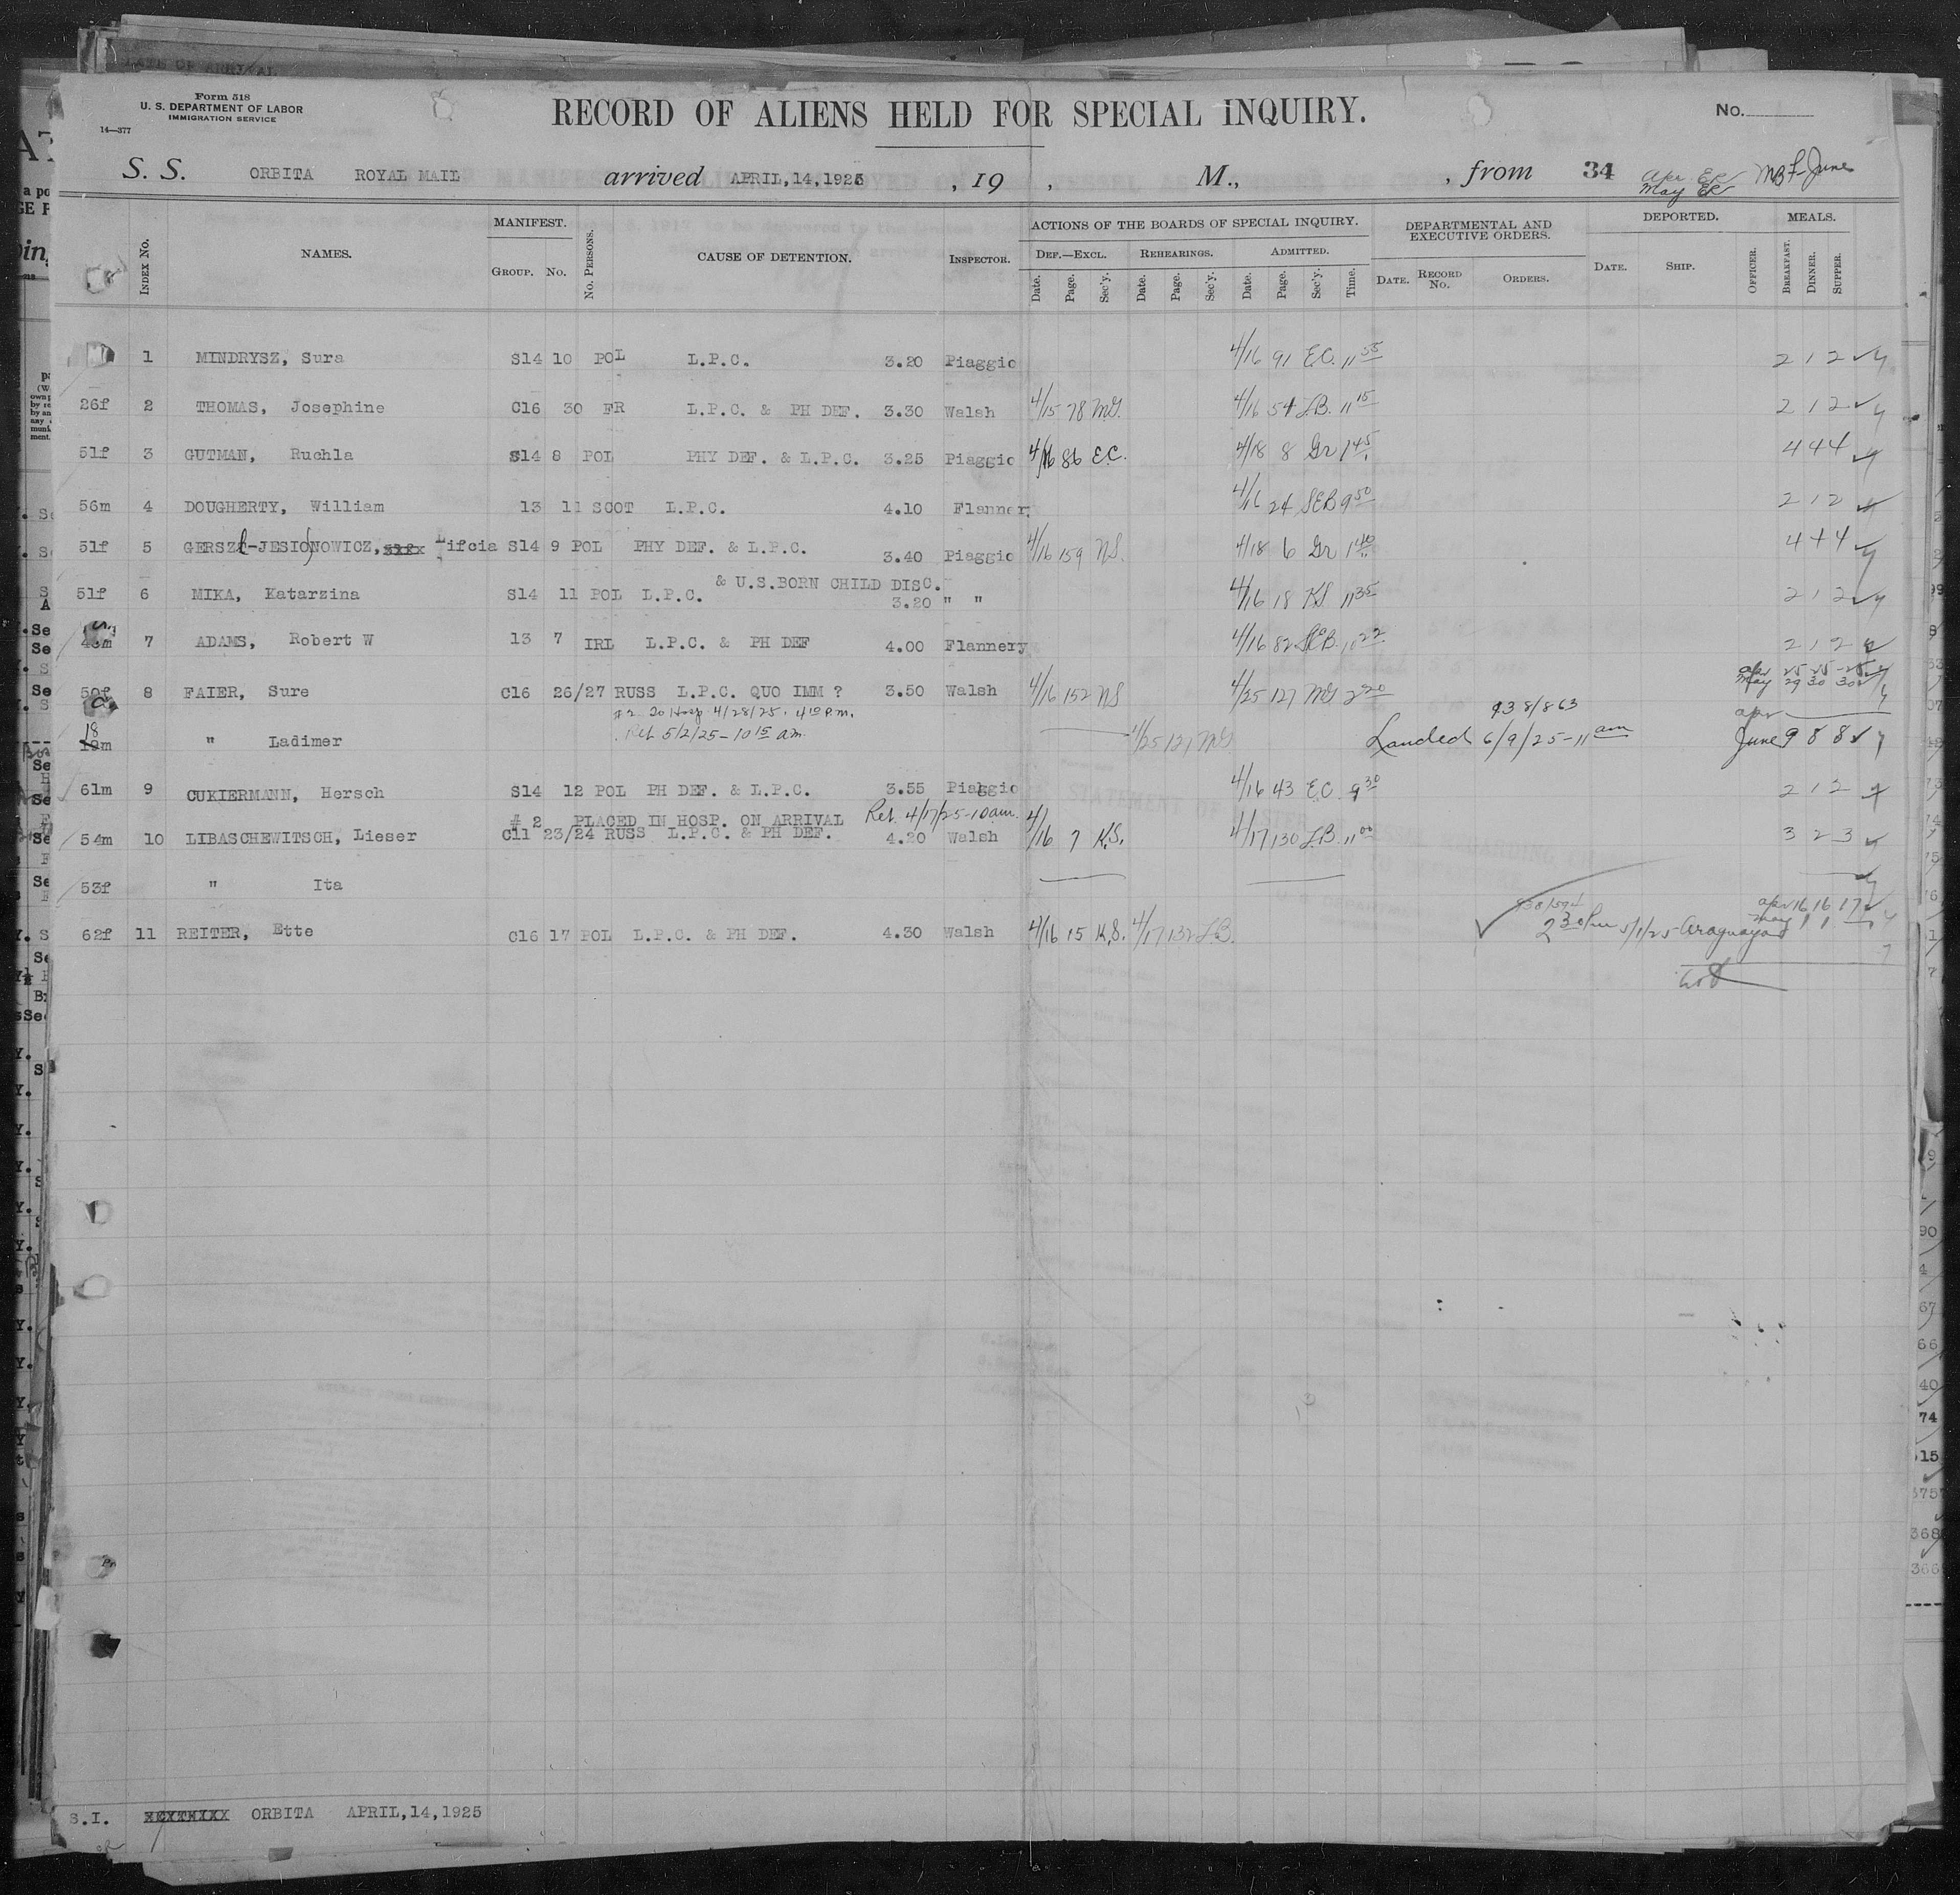 Form 518
U. S. DEPARTMENT OF LABOR
IMMIGRATION SERVICE
14—377
RECORD OF ALIENS HELD FOR SPECIAL INQUIRY.
No.
S. S. ORBITA ROYAL MAIL arrived APRIL,14,1925 , 19 , M., , from 34 Apr ER MBF-June
May ER
INDEX No. NAMES. MANIFEST. GROUP. No. No. PERSONS. CAUSE OF DETENTION. INSPECTOR. ACTIONS OF THE BOARDS OF SPECIAL INQUIRY. DEPARTMENTAL AND EXECUTIVE ORDERS. DEPORTED. MEALS.
DEF.—EXCL. REHEARINGS. ADMITTED.
Date. Page. Sec'y. Date. Page. Sec'y. Date. Page. Sec'y. Time. DATE. RECORD No. ORDERS. DATE. SHIP. OFFICER. BREAKFAST. DINNER. SUPPER.
1 MINDRYSZ, Sura S14 10 POL L.P.C. 3.20 Piaggio 4/16 91 E.C. 11 55 2 1 2
26f 2 THOMAS, Josephine C16 30 FR L.P.C. & PH DEF. 3.30 Walsh 4/15 78 MG. 4/16 54 L.B. 11 15 2 1 2
51f 3 GUTMAN, Ruchla S14 8 POL PHY DEF. & L.P.C. 3.25 Piaggio 4/16 86 E.C. 4/18 8 Gr 1 45 4 4 4
56m 4 DOUGHERTY, William 13 11 SCOT L.P.C. 4.10 Flanner 4/16 24 SEB 9 50 2 1 2
51f 5 GERSZ(-JESIO)NOWICZ, Lifcia S14 9 POL PHY DEF. & L.P.C. 3.40 Piaggio 4/16 159 NS. 4/18 6 Gr 1 40 4 4 4
& U.S.BORN CHILD DISC.
51f 6 MIKA, Katarzina S14 11 POL L.P.C. 3.20 " " 4/16 18 K.S. 11 35 2 1 2
7 ADAMS, Robert W 13 7 IRL L.P.C. & PH DEF 4.00 Flannery 4/16 82 SEB. 10 22 2 1 2
Apr 25 25 25
50f 8 FAIER, Sure C16 26/27 RUSS L.P.C. QUO IMM ? 3.50 Walsh 4/16 152 NS 4/25 127 MG 2 20 May 29 30 30
#2 To Hosp 4/28/25. 4 10 P.m. 938/863 apr
Ret 5/2/25-10 15 am.
18 m " Ladimer 4/25 121 MG Landed 6/9/25-11 am June 9 8 8
61m 9 CUKIERMANN, Hersch S14 12 POL PH DEF. & L.P.C. 3.55 Piaggio 4/16 43 E.C. 9 30 2 1 2
# 2 PLACED IN HOSP. ON ARRIVAL Ret. 4/17/25-10am.
54m 10 LIBASCHEWITSCH, Lieser C11 23/24 RUSS L.P.C. & PH DEF. 4.20 Walsh 4/16 7 K.S. 4/17 130 L.B. 11 00 3 2 3
53f " Ita
apr 16 16 17
62f 11 REITER, Ette C16 17 POL L.P.C. & PH DEF. 4.30 Walsh 4/16 15 K.S. 4/17 132 L.B. 2 30 Pm 5/1/25 Araguaya May 1 1
S.I. ORBITA APRIL,14,1925